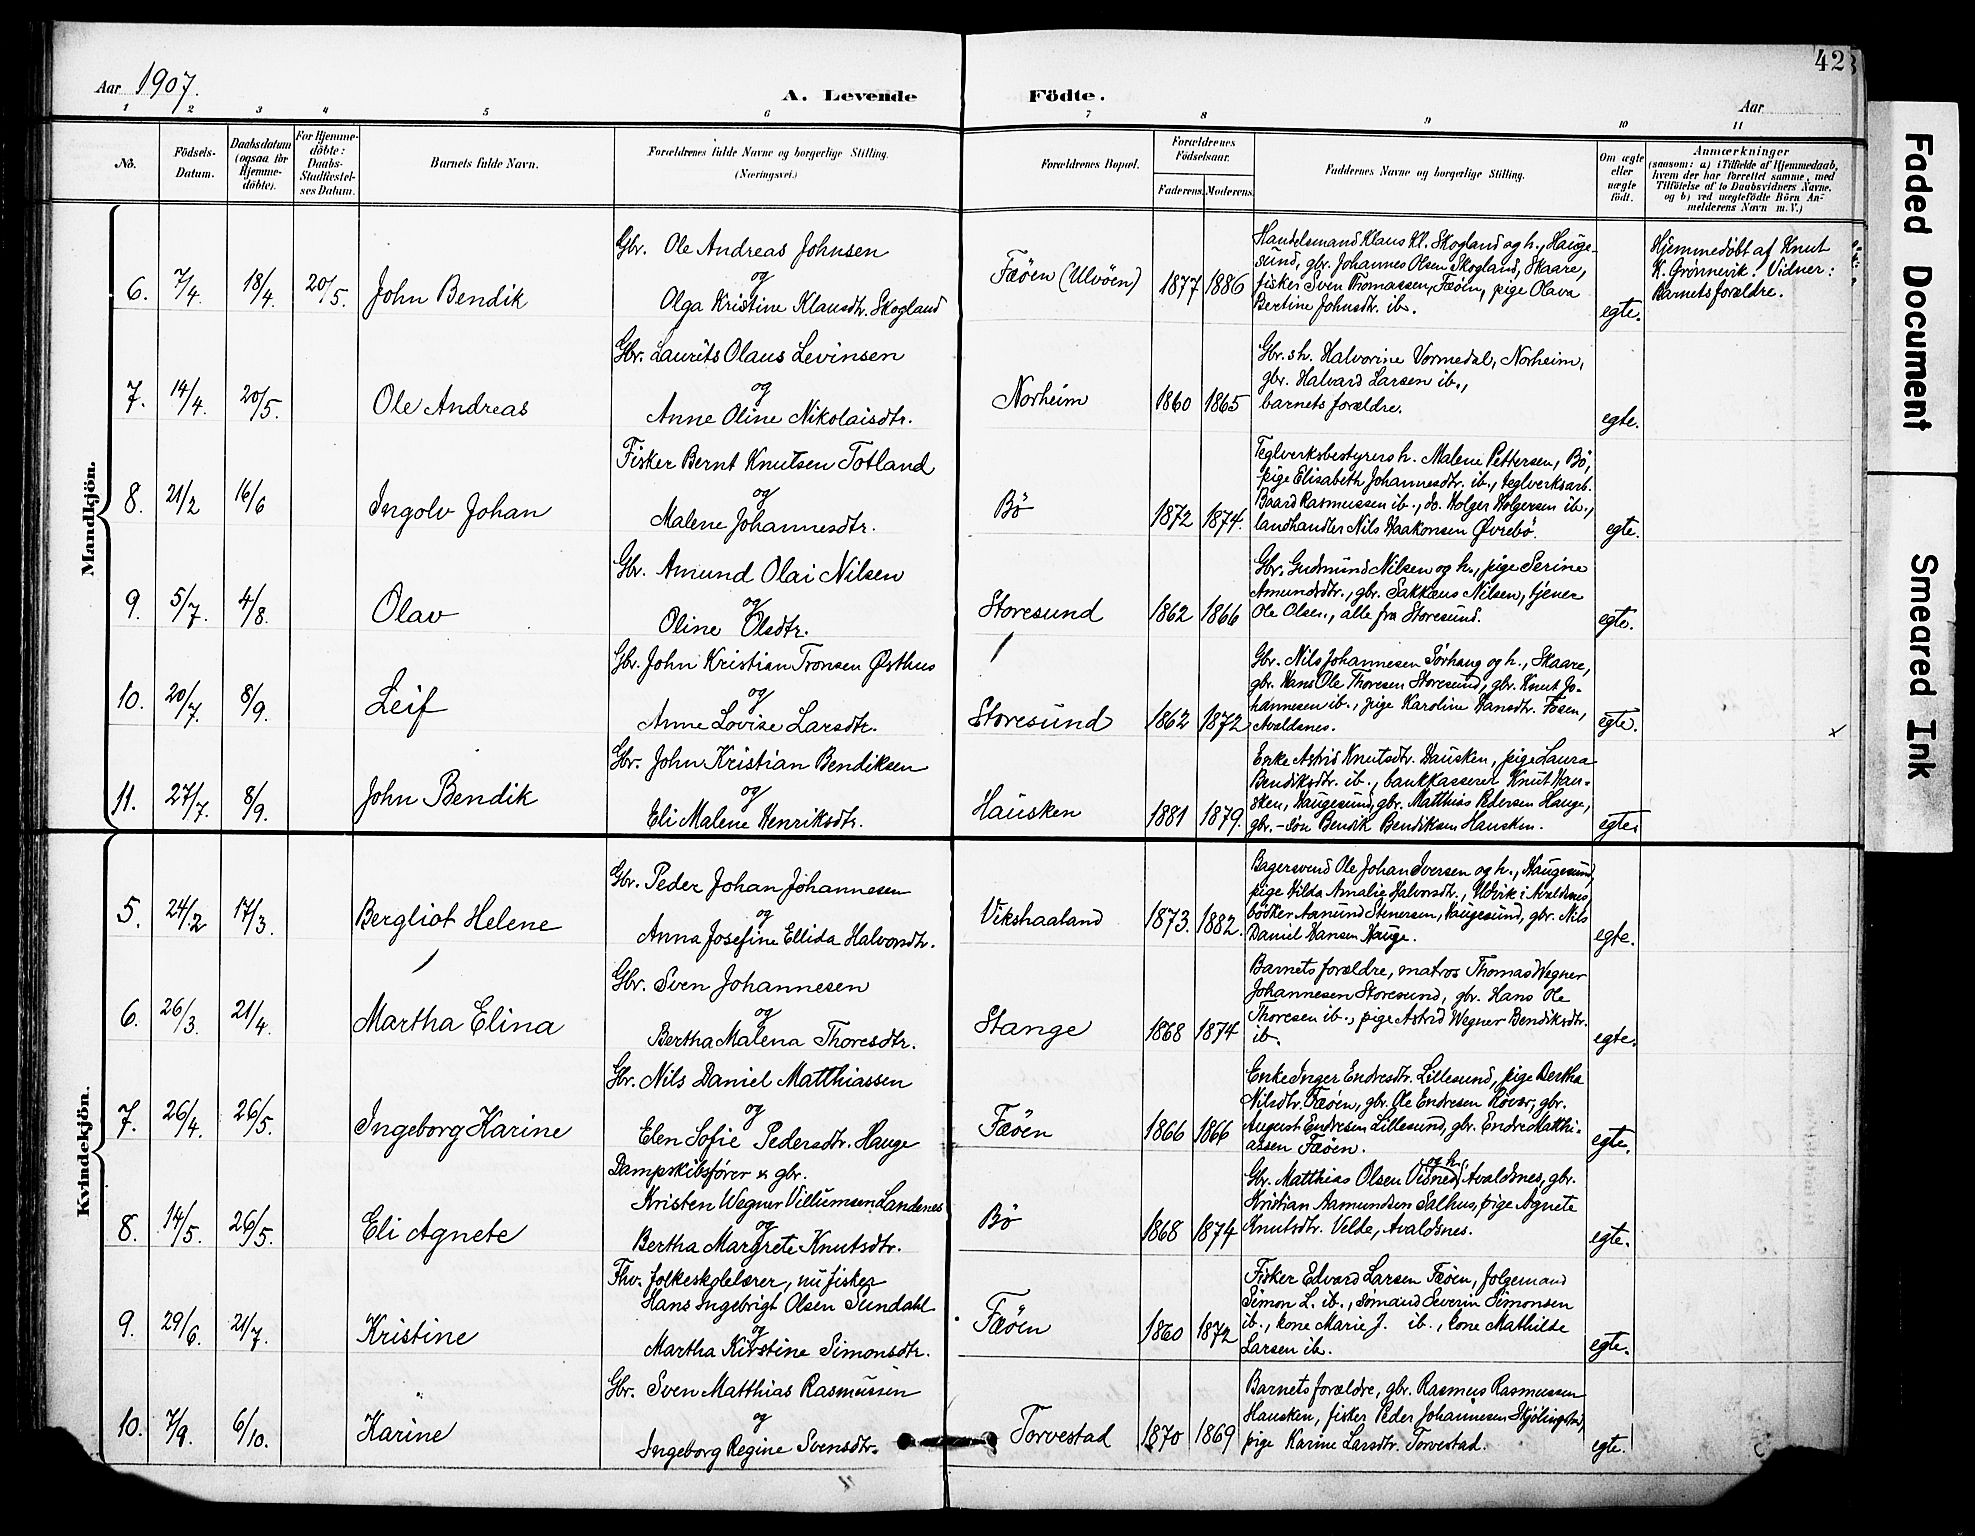 42
Aar 1907.
A. Levende Födte.
Aar
1 2 3 4 5 6 7 8 9 10 11
No.
Födsels-Datum.
Daabsdatum (ogsaa for Hjemme-döbte).
For Hjemme-döbte: Daabs-Stadfæstel-ses Datum.
Barnets fulde Navn.
Forældrenes fulde Navne og borgerlige Stilling.
(Næringsvei.)
Forældrenes Bopæl.
Forældrenes Födselsaar.
Faderens. Moderens.
Faddernes Navne og borgerlige Stilling.
Om ægte eller uægte födt.
Anmærkninger
(saasom: a) i Tilfælde af Hjemmedaab,
hvem der har forrettet samme, med
Tilföielse af to Daabsvidners Navne.
og b) ved uægtefödte Börn An-
melderens Navn m. V.)
Mandkjön.
6. 7/4. 18/4. 20/5. John Bendik
Gbr. Ole Andreas Johnsen
og
Olga Kristine Klausdtr. Skogland
Fæöen (Ulvöen) 1877 1886
Handelsmand Klaus Kl. Skogland og h., Hauge-
sund, gbr. Johannes Olsen Skogland, Skaare,
fisker Sven Thomassen, Fæöen, pige Olava
Bertine Johnsdtr. ib.
egte.
Hjemmedöbt af Knut
K. Grönnevik. Vidner:
Barnets forældre.
7. 14/4. 20/5. Ole Andreas
Gbr. Laurits Olaus Levinsen
og
Anne Oline Nikolaisdtr.
Norheim 1860 1865
Gbr.s h. Halvorine Vormedal, Norheim,
gbr. Halvard Larsen ib.,
barnets forældre.
egte.
8. 21/2 16/6 Ingolv Johan
Fisker Bernt Knutsen Totland
og
Malene Johannesdtr.
Bö 1872 1874.
Teglverksbestyrers h. Malene Pettersen, Bö,
pige Elisabeth Johannesdtr. ib., teglverksarb.
Baard Rasmussen ib., do. Holger Holgersen ib.,
landhandler Nils Haakonsen Øvrebö.
egte.
9. 5/7. 4/8. Olav
Gbr. Amund Olai Nilsen
og
Oline Olsdtr.
Storesund 1862 1866
Gbr. Gudmund Nilsen og h., pige Serine
Amundsdtr., gbr. Sakkæus Nilsen, tjener
Ole Olsen, alle fra Storesund.
egte.
10. 20/7. 8/9. Leif
Gbr. John Kristian Tronsen Østhus
og
Anne Lovise Larsdtr.
Storesund 1862 1872
Gbr. Nils Johannesen Sörhaug og h., Skaare,
gbr. Hans Ole Thoresen Storesund, gbr. Knut Jo-
hannesen ib., pige Karoline Hansdtr. Fosen,
Avaldsnes.
egte.
x
11. 27/7. 8/9. John Bendik
Gbr. John Kristian Bendiksen
og
Eli Malene Henriksdtr.
Hausken 1881 1879.
Enke Astrid Knutsdtr. Hausken, pige Laura
Bendiksdtr. ib., bankkasserer Knut Hau-
sken, Haugesund, gbr. Matthias Pedersen Hauge,
gbr.-sön Bendik Bendiksen Hausken.
egte.
Kvindekjön.
5. 24/2 17/3. Bergliot Helene
Gbr. Peder Johan Johannesen
og
Anna Josefine Ellida Halvorsdtr.
Vikshaaland 1873. 1882.
Bagersvend Ole Johan Iversen og h., Haugesund,
pige Hilda Amalie Halvorsdtr., Utvik i Avaldsnes,
bödker Aamund Stenersen, Haugesund, gbr. Nils
Daniel Hansen Hauge.
egte.
6. 26/3. 21/4. Martha Elina
Gbr. Sven Johannesen
og
Bertha Malena Thoresdtr.
Stange 1868 1874
Barnets forældre, matros Thomas Wegner
Johannesen Storesund, gbr. Hans Ole
Thoresen ib., pige Astrid Wegner Bendiksdtr.
ib.
egte.
7. 26/4. 26/5. Ingeborg Karine
Gbr. Nils Daniel Matthiassen
og
Elen Sofie Pedersdtr. Hauge
Fæöen 1866 1866
Enke Inger Endresdtr. Lillesund, pige Bertha
Nilsdtr. Fæöen, gbr. Ole Endresen Rövær, gbr.
August Endresen Lillesund, gbr. Endre Matthi-
assen Fæöen.
egte.
8. 14/5. 26/5. Eli Agnete
Dampskibsförer & gbr.
Kristen Wegner Villumsen Landenes
og
Bertha Margrete Knutsdtr.
Bö 1868 1874
Gbr. Matthias Olsen Visnes og h., Avaldsnes, gbr.
Kristian Aamundsen Salhus, pige Agnete
Knutsdtr. Velde, Avaldsnes.
egte.
9. 29/6. 21/7. Kristine
Fhv. folkeskolelærer, nu fisker
Hans Ingebrigt Olsen Sundahl
og
Martha Kirstine Simonsdtr.
Fæöen 1860 1872
Fisker Edvard Larsen Fæöen, folgemand
Simon L. ib., sömand Severin Simonsen
ib., kone Marie J. ib., kone Mathilde
Larsen ib.
egte.
10. 7/9. 6/10. Karine
Gbr. Sven Matthias Rasmussen
og
Ingeborg Regine Svensdtr.
Torvestad 1870 1869
Barnets forældre, gbr. Rasmus Rasmussen
Hausken, fisker Peder Johannesen Skjölingstad,
pige Karine Larsdtr. Torvestad.
egte.
Faded Document
Smeared Ink